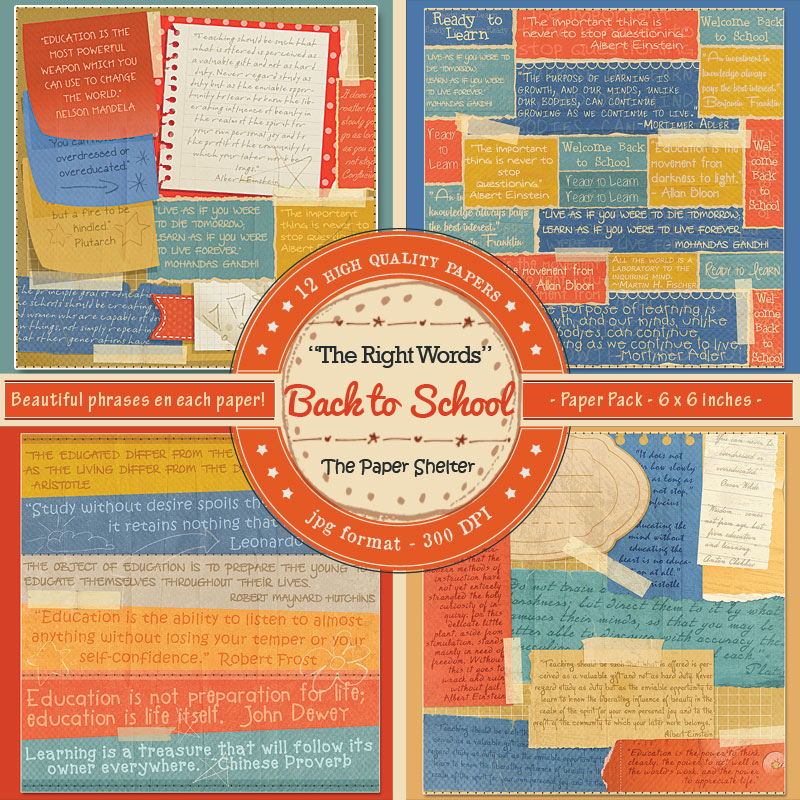 "EDUCATION IS THE
MOST POWERFUL
WEAPON WHICH YOU
CAN USE TO CHANGE
THE WORLD."
NELSON MANDELA
overdressed or
overeducated."
but a fire to be
kindled."
Plutarch
"Teaching should be such that
what is offered is perceived as
a valuable gift and not as hard
duty. Never regard study as
duty but as the enviable oppor-
tunity to learn to know the lib-
erating influence of beauty in
the realm of the spirit for
your own personal joy and to
the profit of the community to
which your later work
belongs."
Albert Einstein
"LIVE AS IF YOU WERE
TO DIE TOMORROW,
LEARN AS IF YOU WERE
TO LIVE FOREVER."
MOHANDAS GANDHI
"The important
thing is never to
stop
Ready to
Learn
"The important thing is
never to stop questioning."
Albert Einstein
Welcome Back
to School
"LIVE AS IF YOU WERE
TO DIE TOMORROW,
LEARN AS IF YOU WERE
TO LIVE FOREVER."
MOHANDAS GANDHI
"THE PURPOSE OF LEARNING IS
GROWTH, AND OUR MINDS, UNLIKE
OUR BODIES, CAN CONTINUE
GROWING AS WE CONTINUE TO LIVE."
-MORTIMER ADLER
"An investment in
knowledge always
pays the best interest."
Benjamin Franklin
Ready
to
Learn
"The important
thing is never to
stop questioning."
Albert Einstein
Welcome Back
to School
Ready to Learn
Ready to Learn
"Education is the
movement from
darkness to light."
- Allan Bloom
Wel-
come
Back
to
School
knowledge always pays
the best interest."
Franklin
"LIVE AS IF YOU WERE TO DIE TOMORROW,
LEARN AS IF YOU WERE TO LIVE FOREVER."
- MOHANDAS GANDHI
the movement from
Allan Bloom
ALL THE WORLD IS A
LABORATORY TO THE
INQUIRING MIND.
-MARTIN H. FISCHER
Ready to Learn
Wel-
come
Back
to
School
purpose of learning is
growth, and our minds, unlike
bodies, can continue
as we continue to live."
-Mortimer Adler
★ 12 HIGH QUALITY PAPERS ★
"The Right Words"
Back to School
The Paper Shelter
jpg format - 300 DPI
Beautiful phrases en each paper!
- Paper Pack - 6 x 6 inches -
"THE EDUCATED DIFFER FROM THE
AS THE LIVING DIFFER FROM THE
-ARISTOTLE
"Study without desire spoils th
it retains nothing that
Leonardo
THE OBJECT OF EDUCATION IS TO PREPARE THE YOUNG TO
EDUCATE THEMSELVES THROUGHOUT THEIR LIVES.
ROBERT MAYNARD HUTCHINS
"Education is the ability to listen to almost
anything without losing your temper or your
self-confidence." Robert Frost
Education is not preparation for life;
education is life itself. John Dewey
Learning is a treasure that will follow its
owner everywhere. ~Chinese Proverb
"It does not
how slowly
as long as
not stop."
Educating the
mind without
educating the
heart is no educa-
tion at all."
Aristotle
You can never be
overdressed or
overeducated."
Oscar Wilde
Anton Chekhov
that the modern
methods of
instruction have
not yet entirely
strangled the holy
curiosity of in-
quiry; for this
delicate little
plant, aside from
stimulation, stands
mainly in need of
freedom. Without
this it goes to
wrack and ruin
without fail.
Albert Einstein
"Do not train
harshness; but direct them to it by what
amuses their minds, so that you may be
better able to discover with accuracy the
Plato
"Teaching should be such that what is offered is per-
ceived as a valuable gift and not as hard duty. Never
regard study as duty but as the enviable opportunity
to learn to know the liberating influence of beauty in
the realm of the spirit for your own personal joy and to the
profit of the community to which your later work belongs."
Albert Einstein
"Education is the power to think
clearly, the power to act well in
the world's work, and the power
to appreciate life."